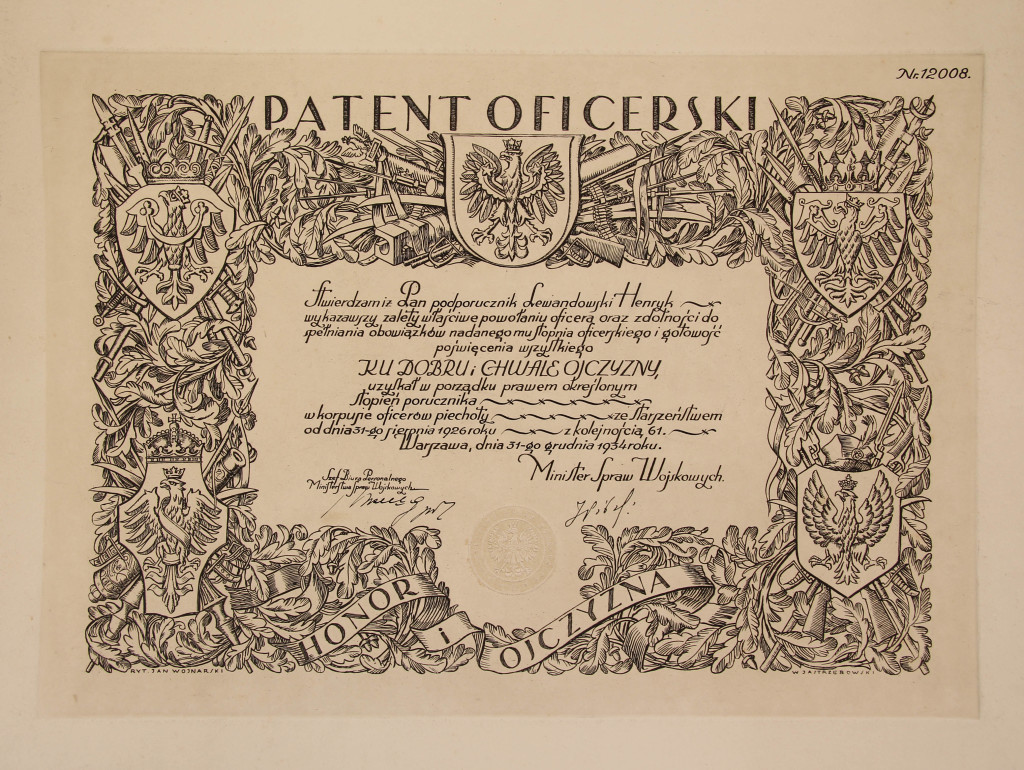 Nr. 12008.
PATENT OFICERSKI
Stwierdzam iż Pan podporucznik Lewandowski Henryk
wykazawszy zalety właściwe powołaniu oficera oraz zdolności do
spełniania obowiązków nadanego mu stopnia oficerskiego i gotowość
poświęcenia wszystkiego
KU DOBRU i CHWALE OJCZYZNY,
uzyskał w porządku prawem określonym
stopień porucznika
w korpusie oficerów piechoty ze starszeństwem
od dnia 31-go sierpnia 1926 roku z kolejnością 61.
Warszawa, dnia 31-go grudnia 1934 roku.
Szef Biura Personalnego
Ministerstwa Spraw Wojskowych
Minister Spraw Wojskowych.
HONOR i OJCZYZNA
RYT. JAN WOJNARSKI
W. JASTRZĘBOWSKI